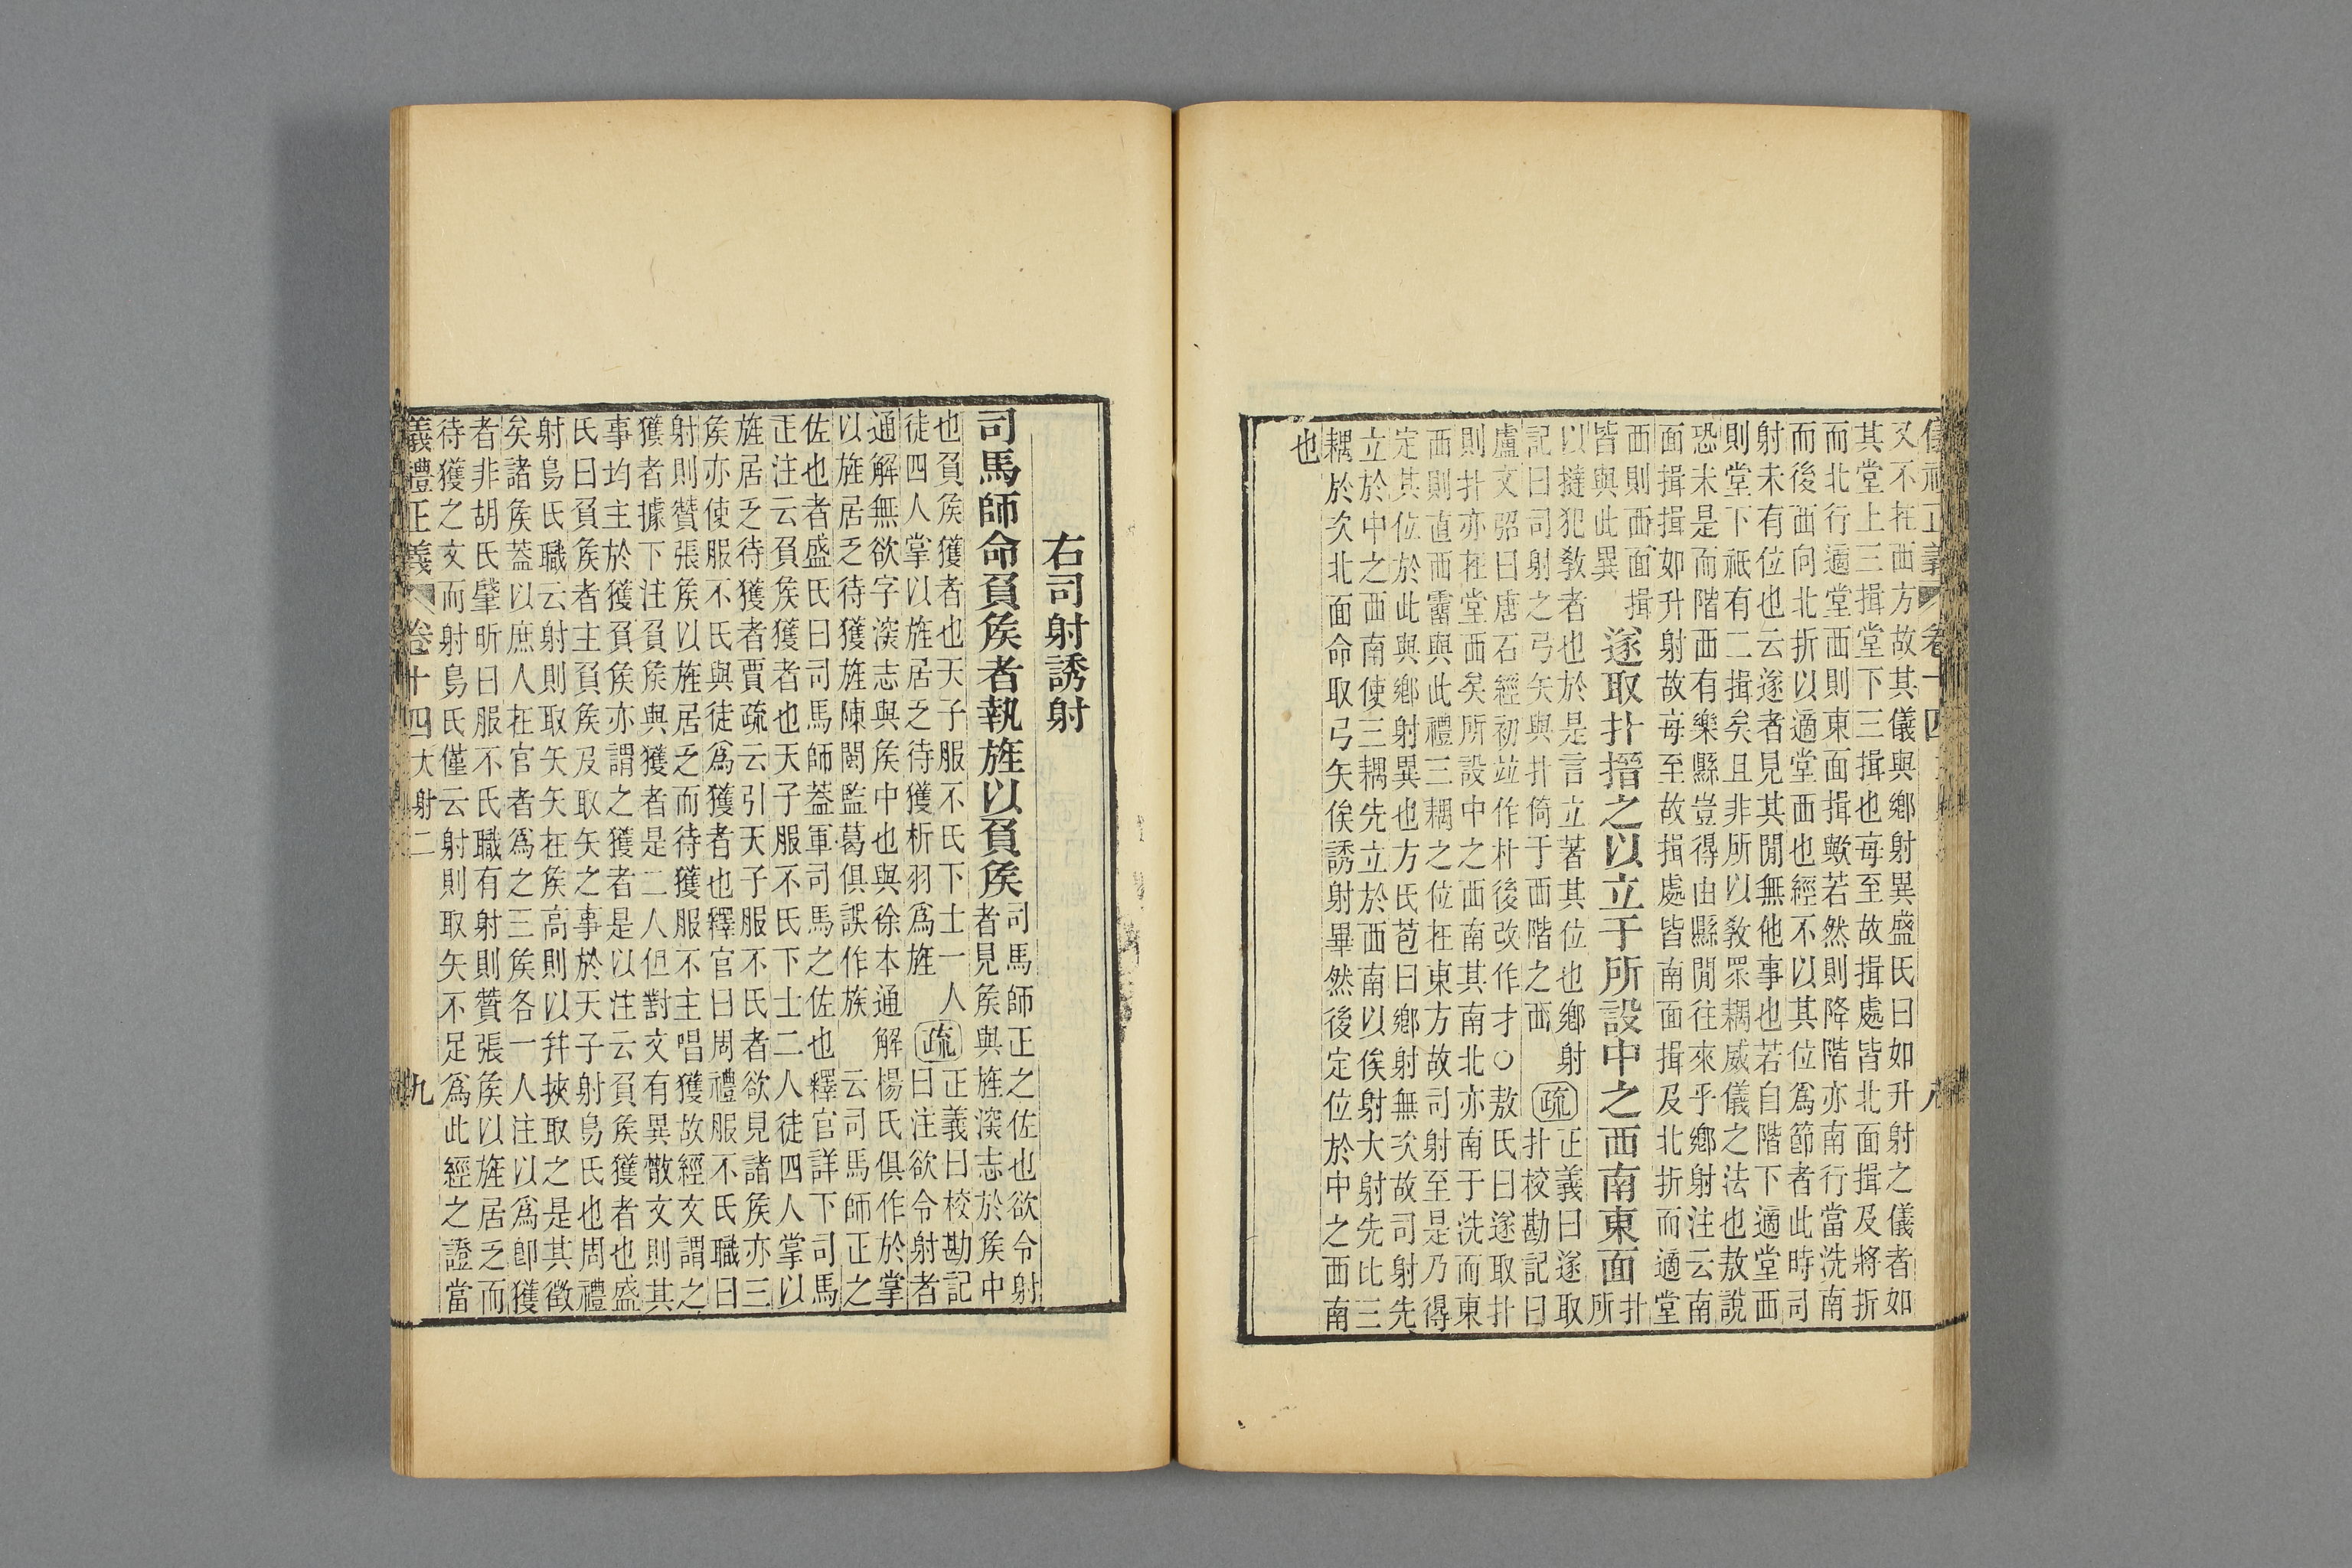 又不在西方故其儀與鄉射異盛氏曰如升射之儀者如
其堂上三揖堂下三揖也每至故揖處皆北面揖及將折
而北行適堂西則東面揖歟若然則降階亦南行當洗南
而後西向北折以適堂西也經不以其位爲節者此時司
射未有位也云遂者見其閒無他事也若自階下適堂西
則堂下祇有二揖矣且非所以敎眾耦威儀之法也敖說
恐未是而階西有樂縣豈得由縣閒往來乎鄉射注云南
面揖揖如升射故每至故揖處皆南面揖及北折而適堂
西則西面揖
皆與此異
遂取扑搢之以立于所設中之西南東面
扑
所
以撻犯敎者也於是言立著其位也鄉射
記曰司射之弓矢與扑倚于西階之西
疏
正義曰遂取
扑校勘記曰
盧文弨曰唐石經初竝作朴後改作才○敖氏曰遂取扑
則扑亦在堂西矣所設中之西南其南北亦南于洗而東
西則直西霤與此禮三耦之位在東方故司射至是乃得
定其位於此與鄉射異也方氏苞曰鄉射無次故司射先
立於中之西南使三耦先立於西南以俟射大射先比三
耦於次北面命取弓矢俟誘射畢然後定位於中之西南
也
右司射誘射
司馬師命負矦者執旌以負矦
司馬師正之佐也欲令射
者見矦與旌深志於矦中
也負矦獲者也天子服不氏下士一人
徒四人掌以旌居乏待獲析羽爲旌
疏
正義曰校勘記
曰注欲令射者
通解無欲字深志與矦中也與徐本通解楊氏俱作於掌
以旌居乏待獲旌陳閩監葛俱誤作族 云司馬師正之
佐也者盛氏曰司馬師葢軍司馬之佐也釋官詳下司馬
正注云負矦獲者也天子服不氏下士二人徒四人掌以
旌居乏待獲者賈疏云引天子服不氏者欲見諸矦亦三
矦亦使服不氏與徒爲獲者也釋官曰周禮服不氏職曰
射則贊張矦以旌居乏而待獲服不主唱獲故經文謂之
獲者據下注負矦與獲者是二人但對文有異散文則其
事均主於獲負矦亦謂之獲者是以注云負矦獲者也盛
氏曰負矦者主負矦及取矢之事於天子射鳥氏也周禮
射鳥氏職云射則取矢矢在矦高則以幷挾取之是其徵
矣諸矦葢以庶人在官者爲之三矦各一人注以爲卽獲
者非胡氏肇昕曰服不氏職有射則贊張矦以旌居乏而
待獲之文而射鳥氏僅云射則取矢不足爲此經之證當
義禮正義 卷十四大射二 九